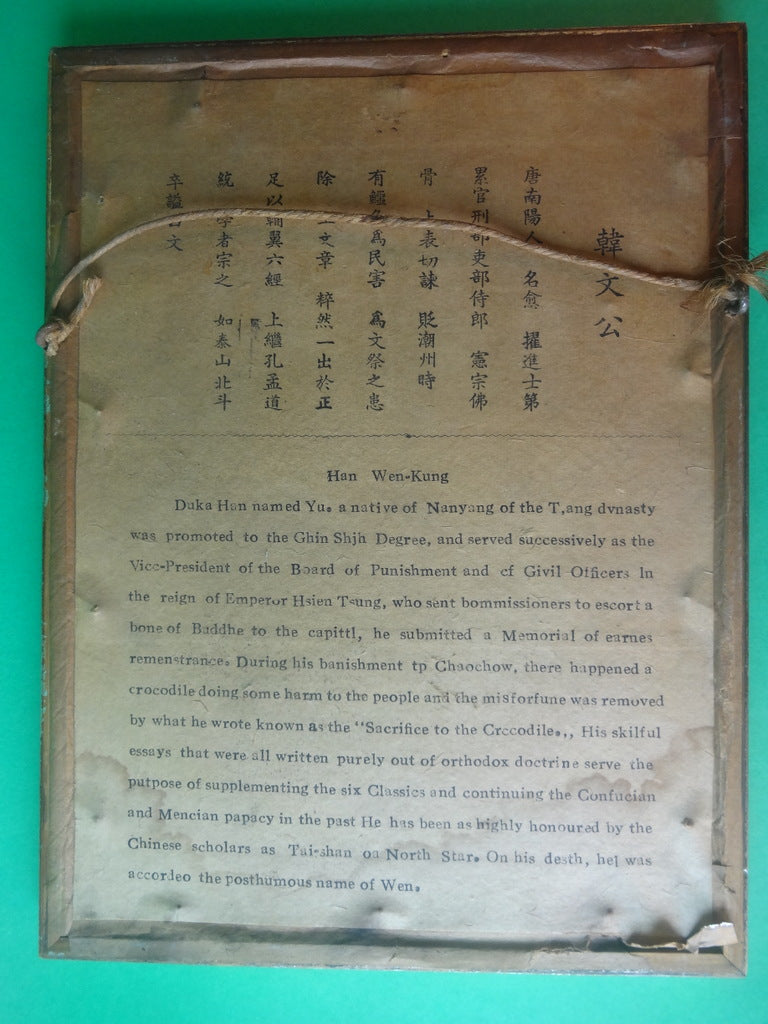 韓文公
唐南陽人 名愈 擢進士第
累官刑部吏部侍郎 憲宗佛
骨 上表切諫 貶潮州時
有鱷魚為民害 為文祭之患
除 文章 粹然一出於正
足以輔翼六經 上繼孔孟道
統 學者宗之 如泰山北斗
卒謚曰文
Han Wen-Kung
Duka Han named Yu. a native of Nanyang of the T,ang dvnasty
was promoted to the Ghin Shjh Degree, and served successively as the
Vice-President of the Board of Punishment and cf Givil Officers ln
the reign of Emperor Hsien Tsung, who sent bommissioners to escort a
bone of Baddhe to the capittl, he submitted a Memorial of earnes
remenstrance. During his banishment tp Chaochow, there happened a
crocodile doing some harm to the people and the misforfune was removed
by what he wrote known as the "Sacrifice to the Crccodile.,, His skilful
essays that were all written purely out of orthodox doctrine serve the
putpose of supplementing the six Classics and continuing the Confucian
and Mencian papacy in the past He has been as highly honoured by the
Chinese scholars as Tai-shan oa North Star. On his desth, he] was
accordeo the posthumous name of Wen.